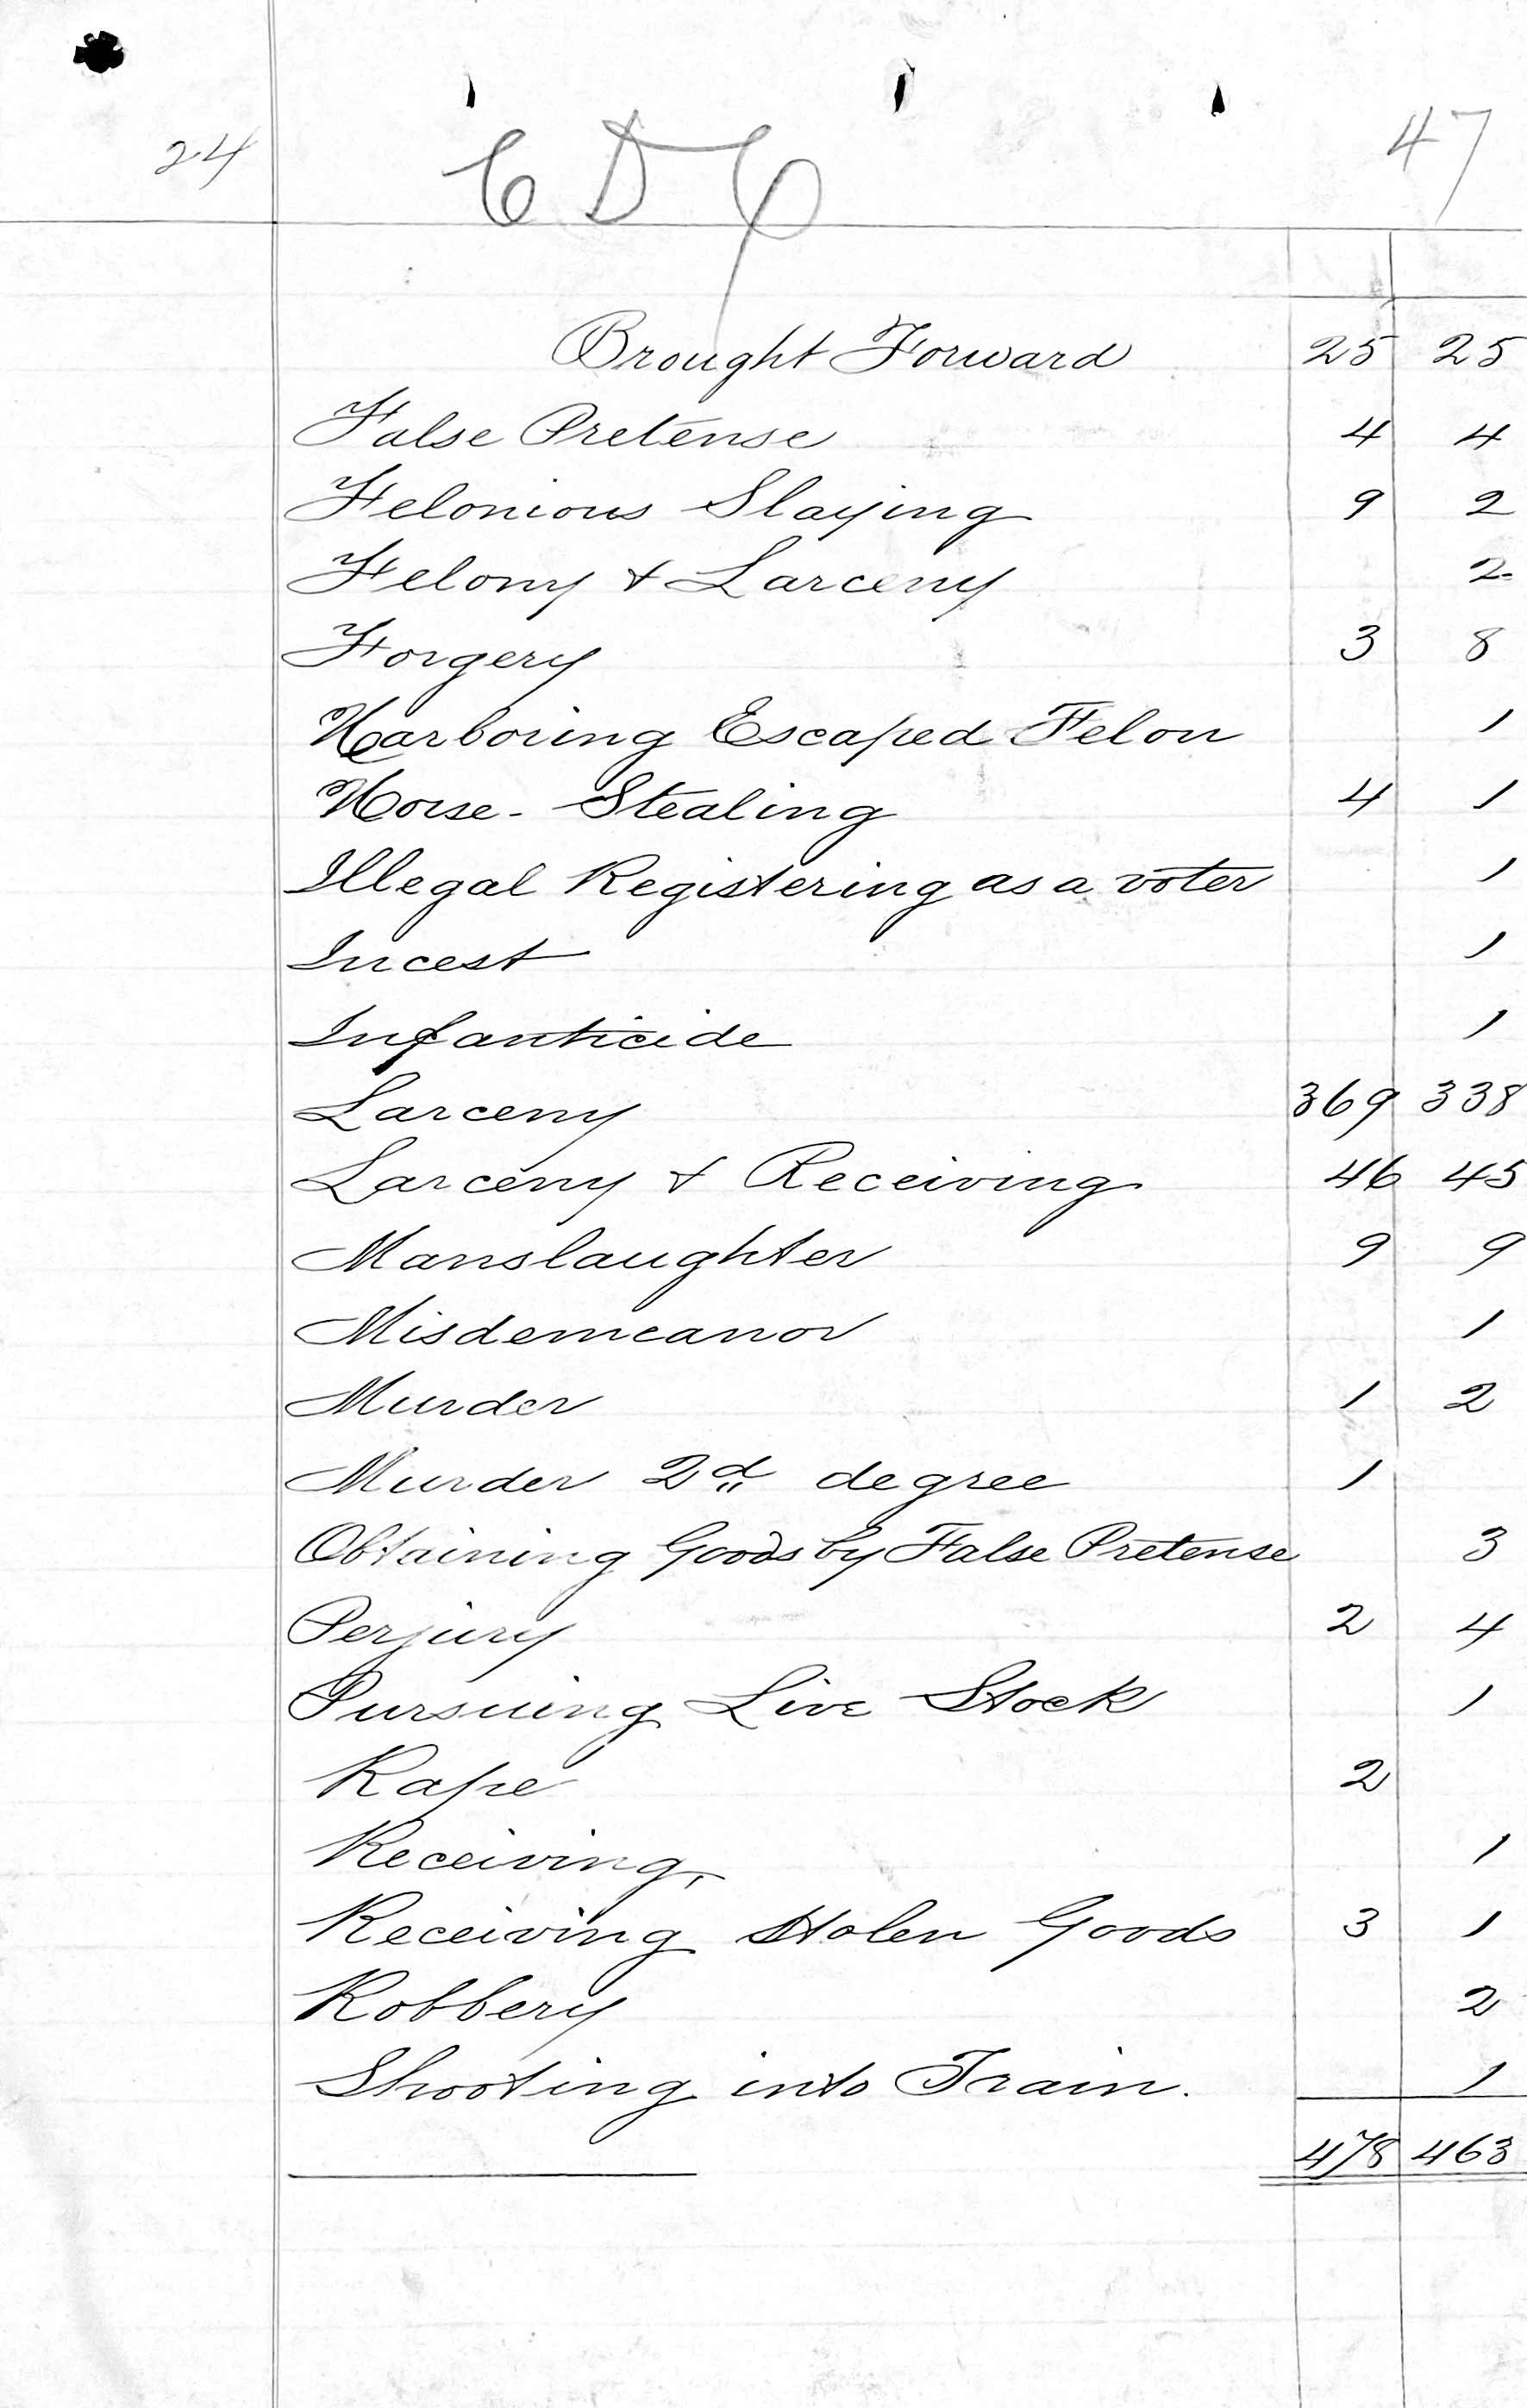 24 47
Brought Forward 25 25
False Pretense 4 4
Felonious Slaying 9 2
Felony & Larceny 2
Forgery 3 8
Harboring Escaped Felon 1
Horse-Stealing 4 1
Illegal Registering as a voter 1
Incest 1
Infanticide 1
Larceny 369 338
Larceny & Receiving 46 45
Manslaughter 9 9
Misdemeanor 1
Murder 1 2
Murder 2d degree 1
Obtaining Goods by False Pretense 3
Perjury 2 4
Pursuing Live Stock 1
Rape 2
Receiving, 1
Receiving Stolen Goods 3 1
Robbery 2
Shooting into Train. 1
478 463